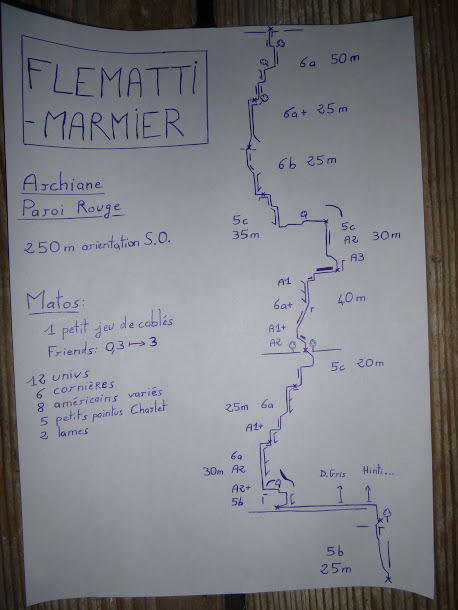 FLEMATTI
-MARMIER
Archiane
Paroi Rouge
250m orientation S.O.
Matos:
1 petit jeu de cablés
Friends: 0,3 ↦ 3
12 univs
6 cornières
8 américains variés
5 petits pointus Charlet
2 lames
6a 50m
6a+ 25m
6b 25m
5c
35m
5c
A2 30m
A3
A1
6a+ 40m
r
A1+
A2
5c 20m
25m 6a
A1+
6a
30m A2
A2+
5b
D.Gris Hinti...
5b
25m